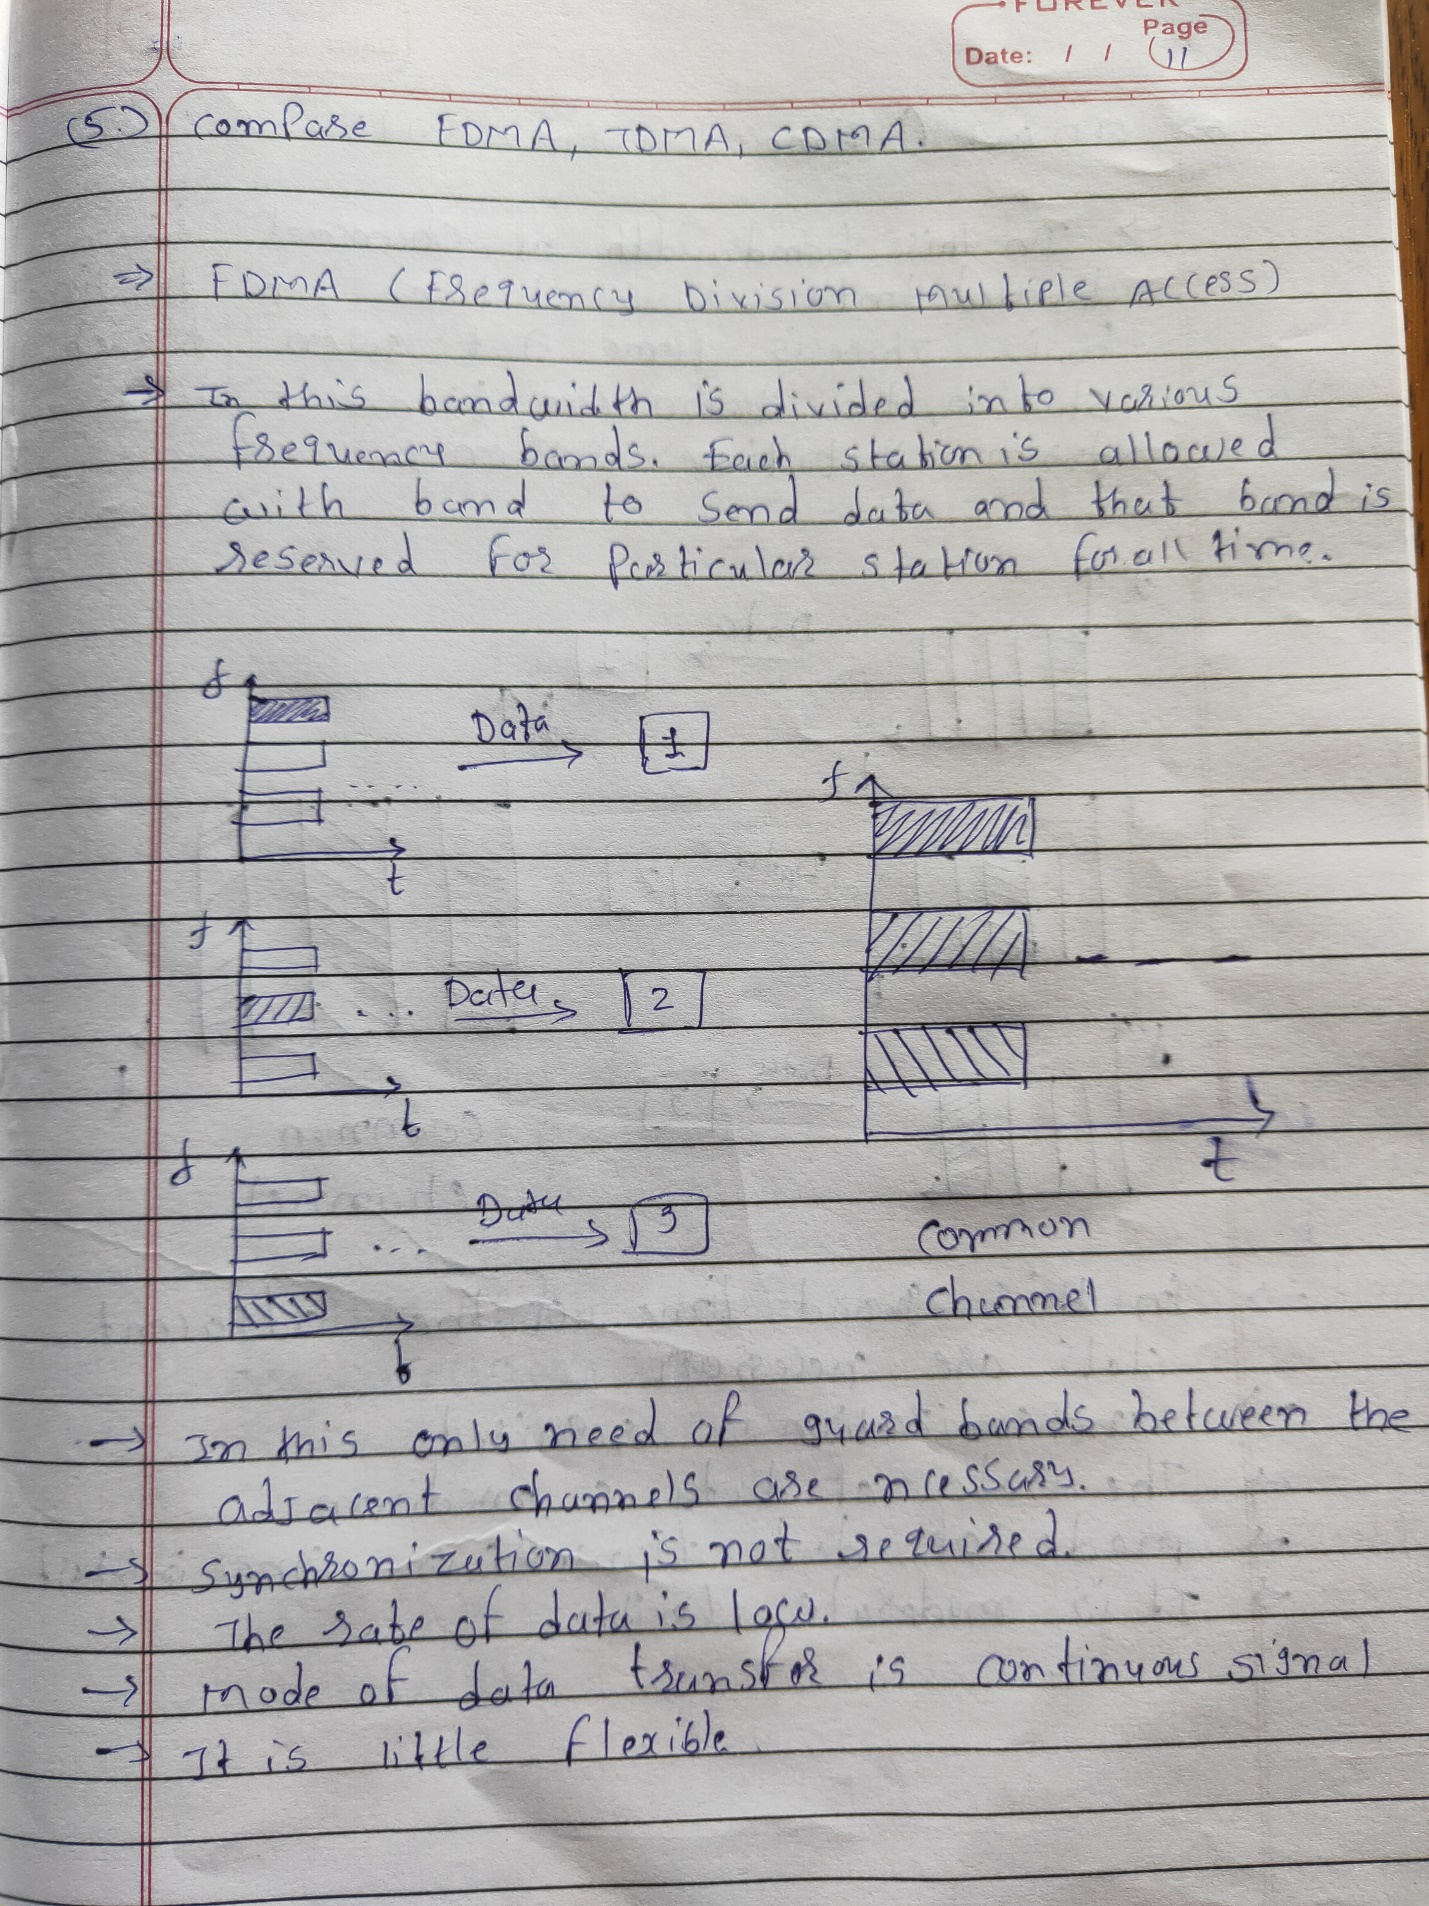 FOREVER
Page
Date: / / 11
(5.) Compare FDMA, TDMA, CDMA.
⇒ FDMA (Frequency Division Multiple Access)
→ In this bandwidth is divided into various
frequency bands. Each station is allowed
with band to send data and that band is
reserved for particular station for all time.
f
Data
1
t
f
Data
2
t
f
Data
3
t
f
t
Common
Channel
→ In this only need of guard bands between the
adjacent channels are ncessary.
→ Synchronization is not required.
→ The rate of data is low.
→ mode of data transfor is continuous signal
→ It is little flexible